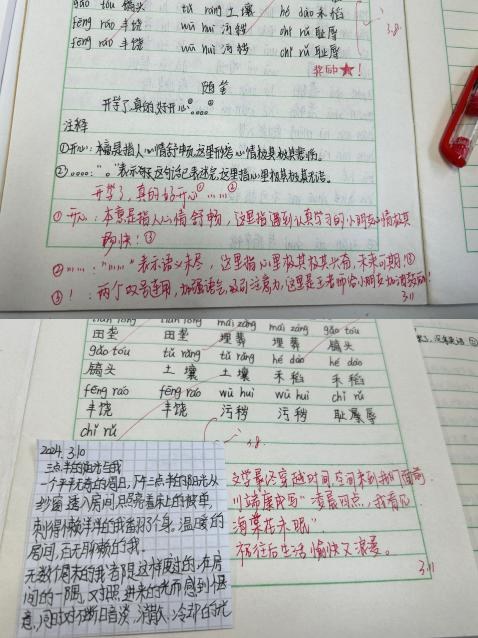 gǎo tou 镐头 tǔ rǎng 土壤 hé dào 禾稻
fēng ráo 丰饶 wū huì 污秽 chǐ rǔ 耻辱
fēng ráo 丰饶 wū huì 污秽 chǐ rǔ 耻辱
3.8.
奖励★!
随笔
开学了,真的好开心①。。。。②
注释
①开心:本意是指人心情舒畅,这里形容心情极其极其悲伤。
②。。。。:"。"表示
这里形容心里极其极其无语。
开学了,真的好开心①……②
①开心:本意是指人心情舒畅,这里指遇到认真学习的小朋友心情极其
畅快!③
②……:"……"表示语义未尽,这里指心里极其极其
未来可期!③
③!:两个叹号连用,加强语气,以引注意力,这里是王老师给小朋友加油鼓劲!
3.11
tián lǒng tián lǒng mái zàng mái zàng gǎo tou
田垄 田垄 埋葬 埋葬 镐头
gǎo tóu tǔ rǎng tǔ rǎng hé dáo hé dáo
镐头 土壤 土壤 禾稻 禾稻
fēng ráo fēng ráo wū huì wū huì chǐ rǔ
丰饶 丰饶 污秽 污秽 耻辱辱
chǐ rǔ
3.8.
2024.3.10
三点半的阳光与我
一个平平无奇的周日,下午三点半的阳光从
纱窗透入房间,只照亮着床上的被单,
刺得懒洋洋的我翻了个身。温暖的
房间,百无聊赖的我。
无数个周末的我都是这样度过的,在房
间的一隅,又对照进来的光而感到惬
意,同时又不断自责、消散、冷却的光
文学最终穿越时间空间来到我们面前
川端康成写"凌晨四点,我看见
海棠花未眠"
祝往后生活愉快又浪漫。
3.11